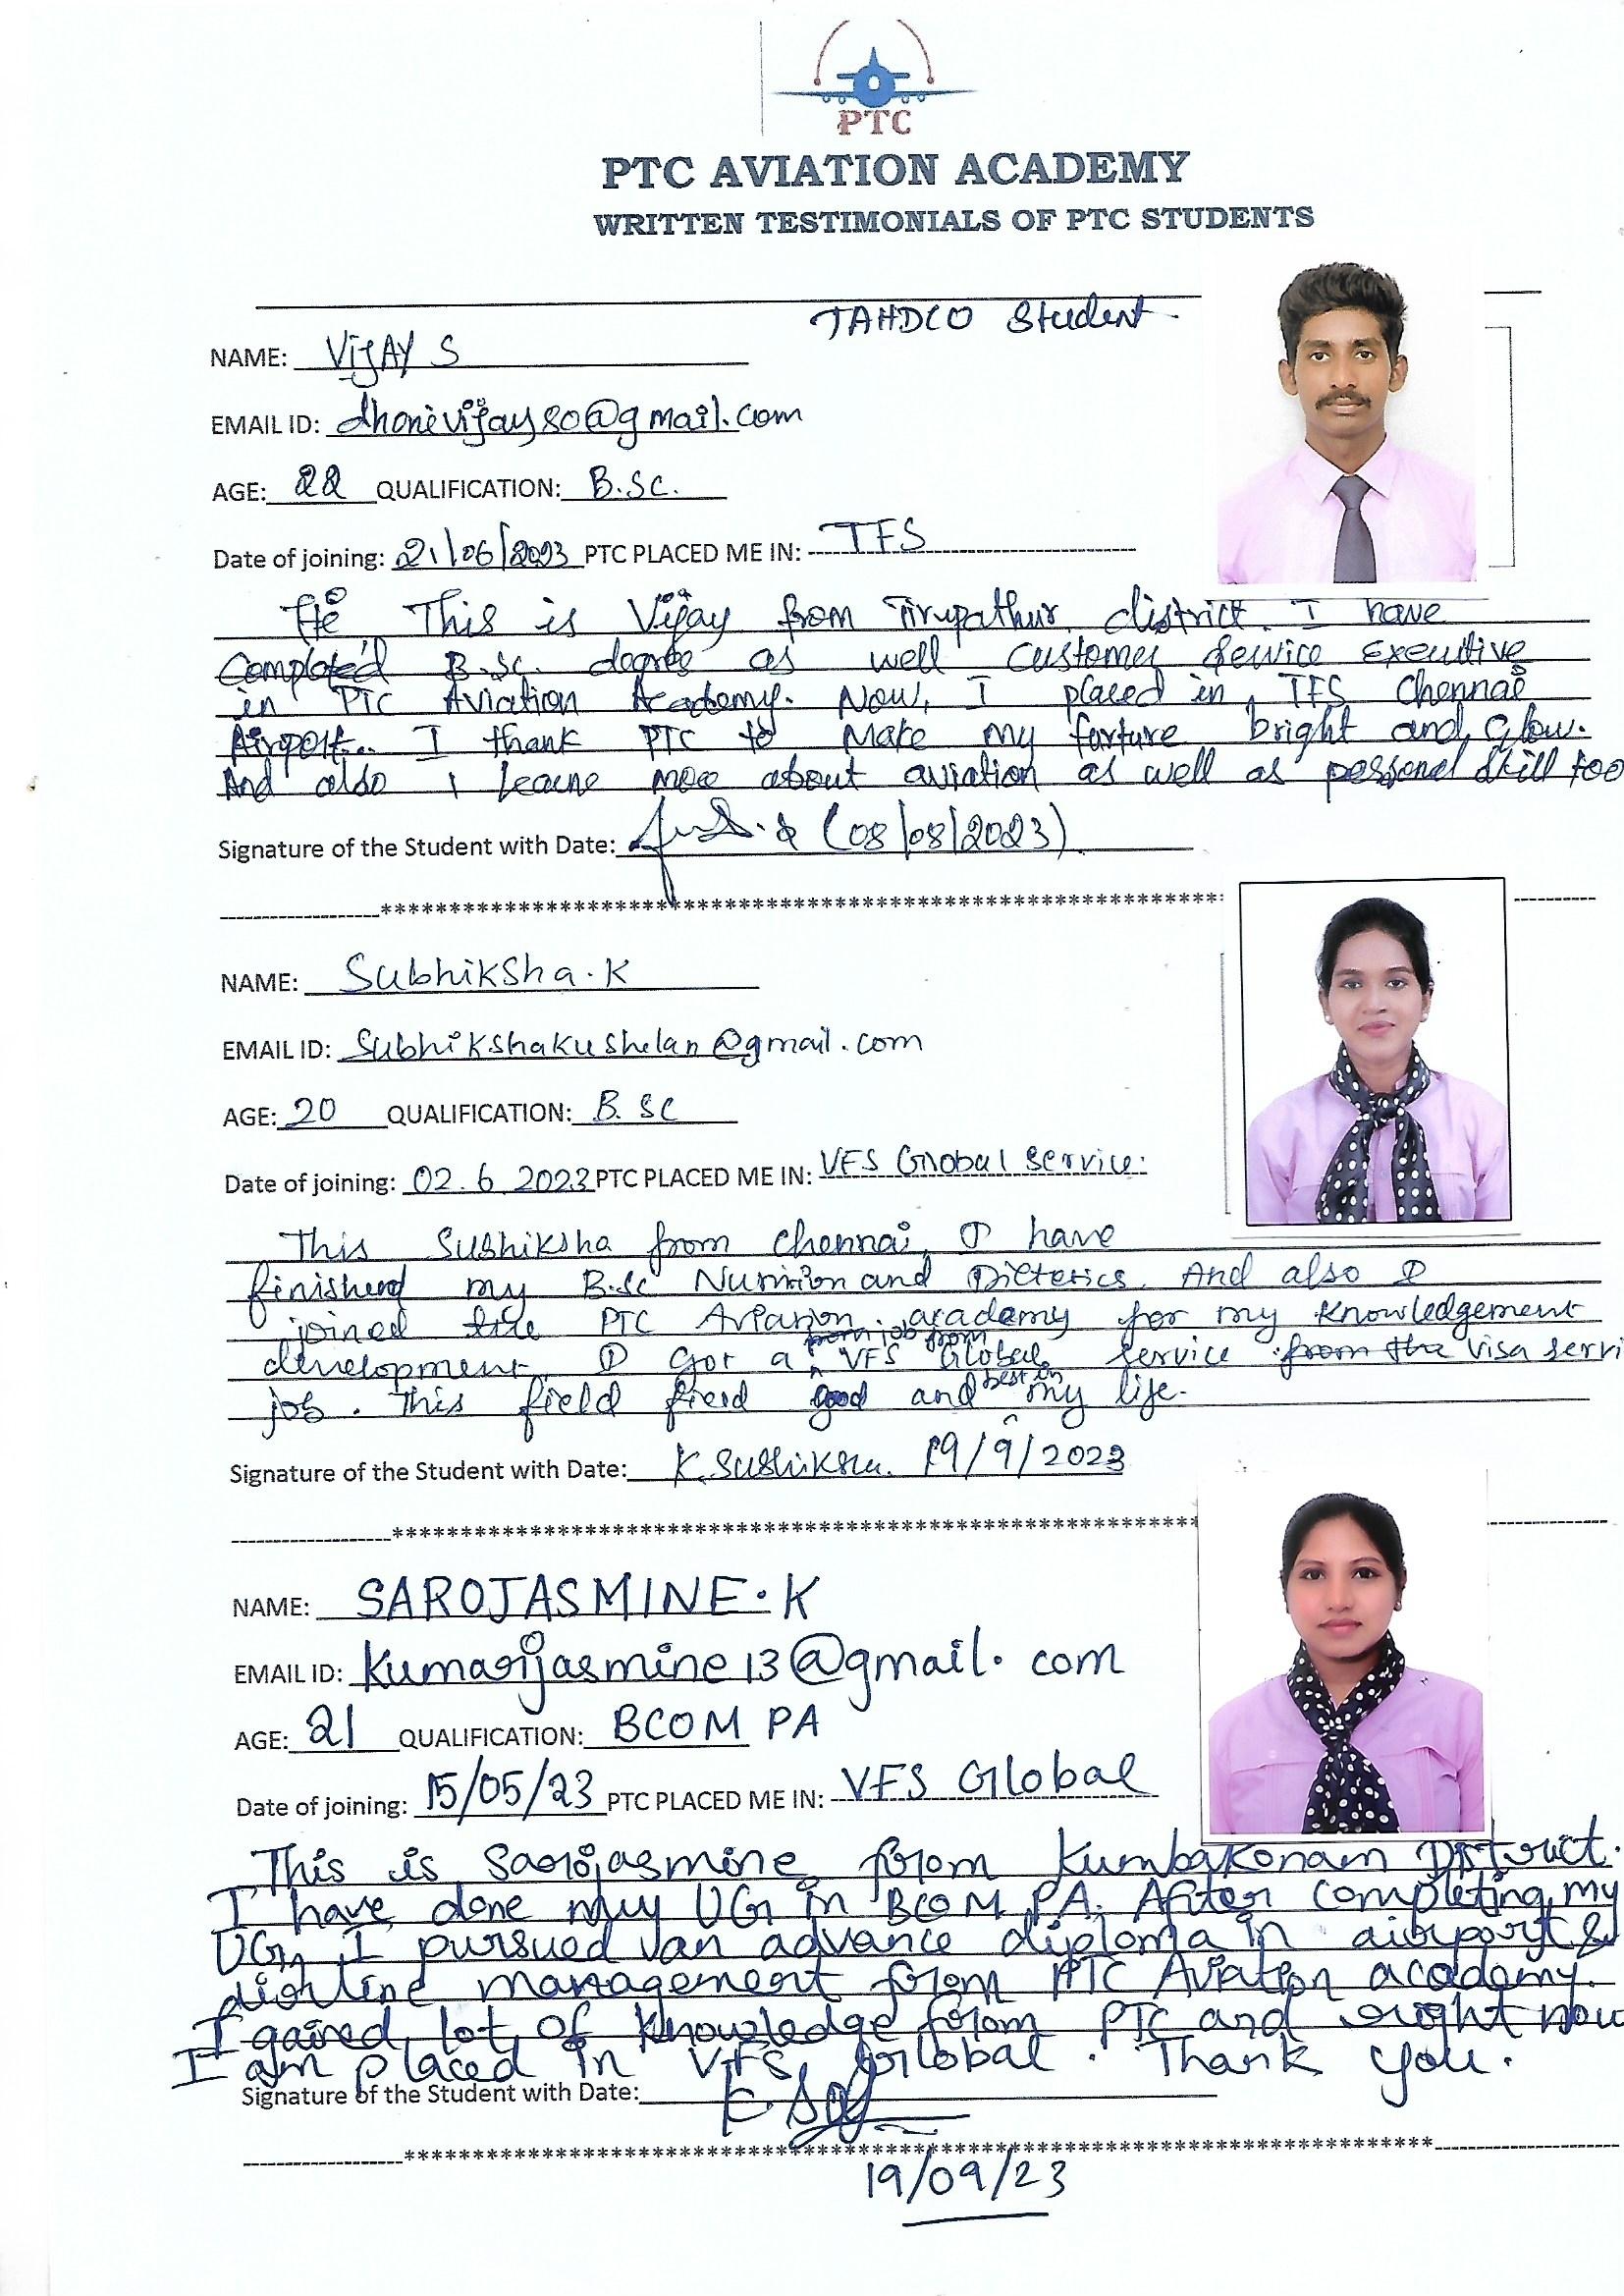 PTC
PTC AVIATION ACADEMY
WRITTEN TESTIMONIALS OF PTC STUDENTS
TAHDCO Student.
NAME: VIJAY S
EMAIL ID: dhonivijay80@gmail.com
AGE: 22 QUALIFICATION: B.SC.
Date of joining: 21/06/2023 PTC PLACED ME IN: TFS
Hi This is Vijay from Tirupathur district. I have
Completed B.Sc. degree as well Customer Service Executive
in PTC Aviation Academy. Now, I placed in TFS Chennai
Airport. I thank PTC to Make my furture bright and Glow.
And also I learne more about aviation as well as personal skill too
Signature of the Student with Date: (08/08/2023)
****************************************************************
NAME: Subhiksha.K
EMAIL ID: Subhikshakushelan@gmail.com
AGE: 20 QUALIFICATION: B.SC
Date of joining: 02.6.2023 PTC PLACED ME IN: VFS Global Service.
This Subhiksha from Chennai, I have
finished my B.Sc Nutrition and Dietetics. And also I
joined the PTC Aviation academy for my knowledgement
development. I got a VFS Global service from the visa servi
job. This field good and best in my life.
Signature of the Student with Date: K.Subhiksha. 19/9/2023
****************************************************************
NAME: SAROJASMINE.K
EMAIL ID: kumarijasmine13@gmail.com
AGE: 21 QUALIFICATION: BCOM PA
Date of joining: 15/05/23 PTC PLACED ME IN: VFS Global
This is Sarojasmine from Kumbakonam District.
I have done my UG in BCOM PA. After completing my
UG, I pursued an advance diploma in airport &
airline management from PTC Aviation academy.
I gained lot of knowledge from PTC and right now
I am placed in VFS Global. Thank you.
Signature of the Student with Date:
****************************************************************
19/09/23